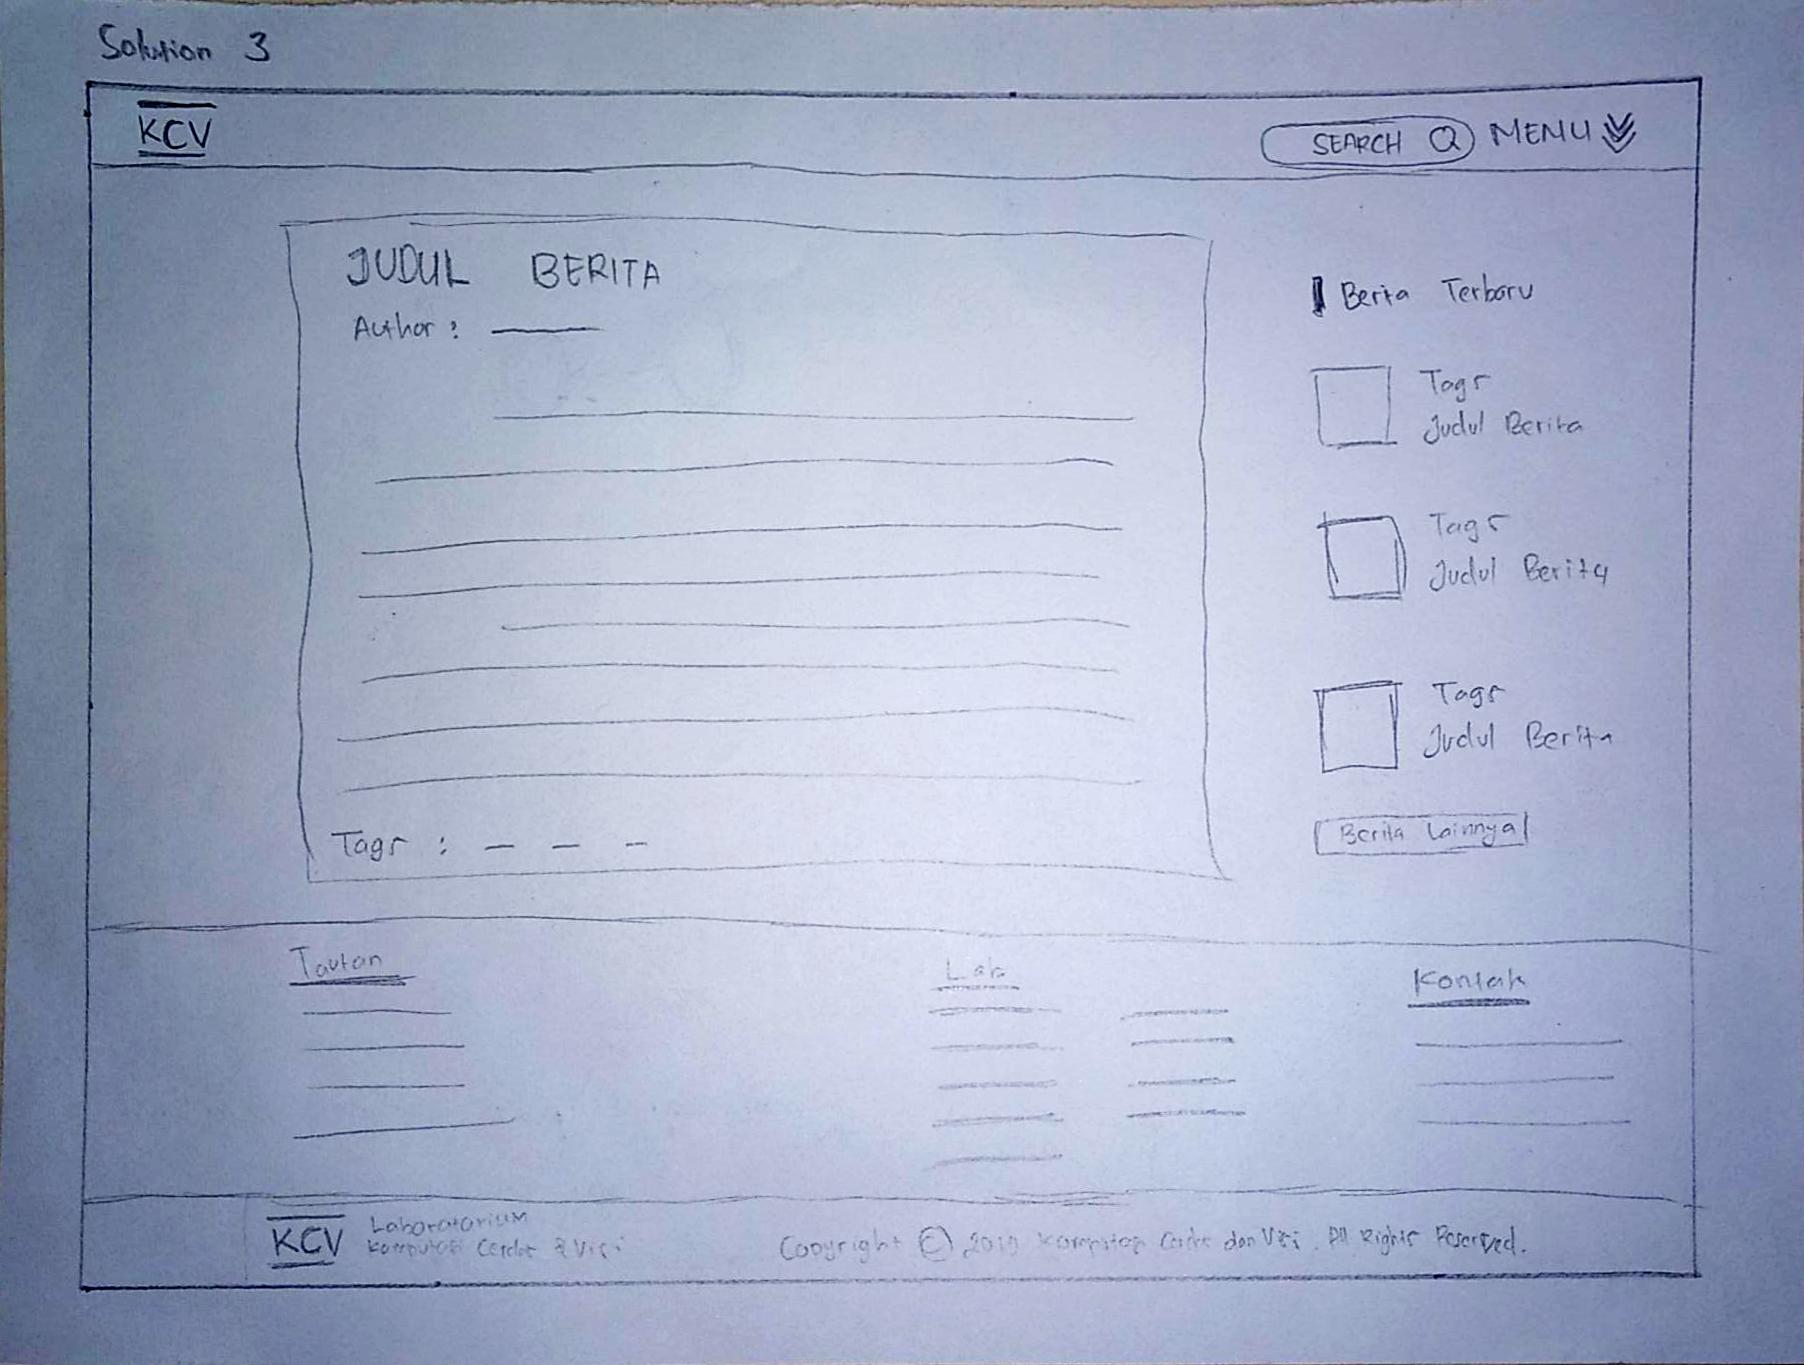 Solution 3
KCV
SEARCH MENU
JUDUL BERITA
Author :
Tags :
Berita Terbaru
Tags
Judul Berita
Tags
Judul Berita
Tags
Judul Berita
Berita Lainnya
Tautan
Lab
Kontak
KCV
Laboratorium
Komputasi Cerdas & Visi
Copyright © 2019 Komputasi Cerdas dan Visi. All Rights Reserved.